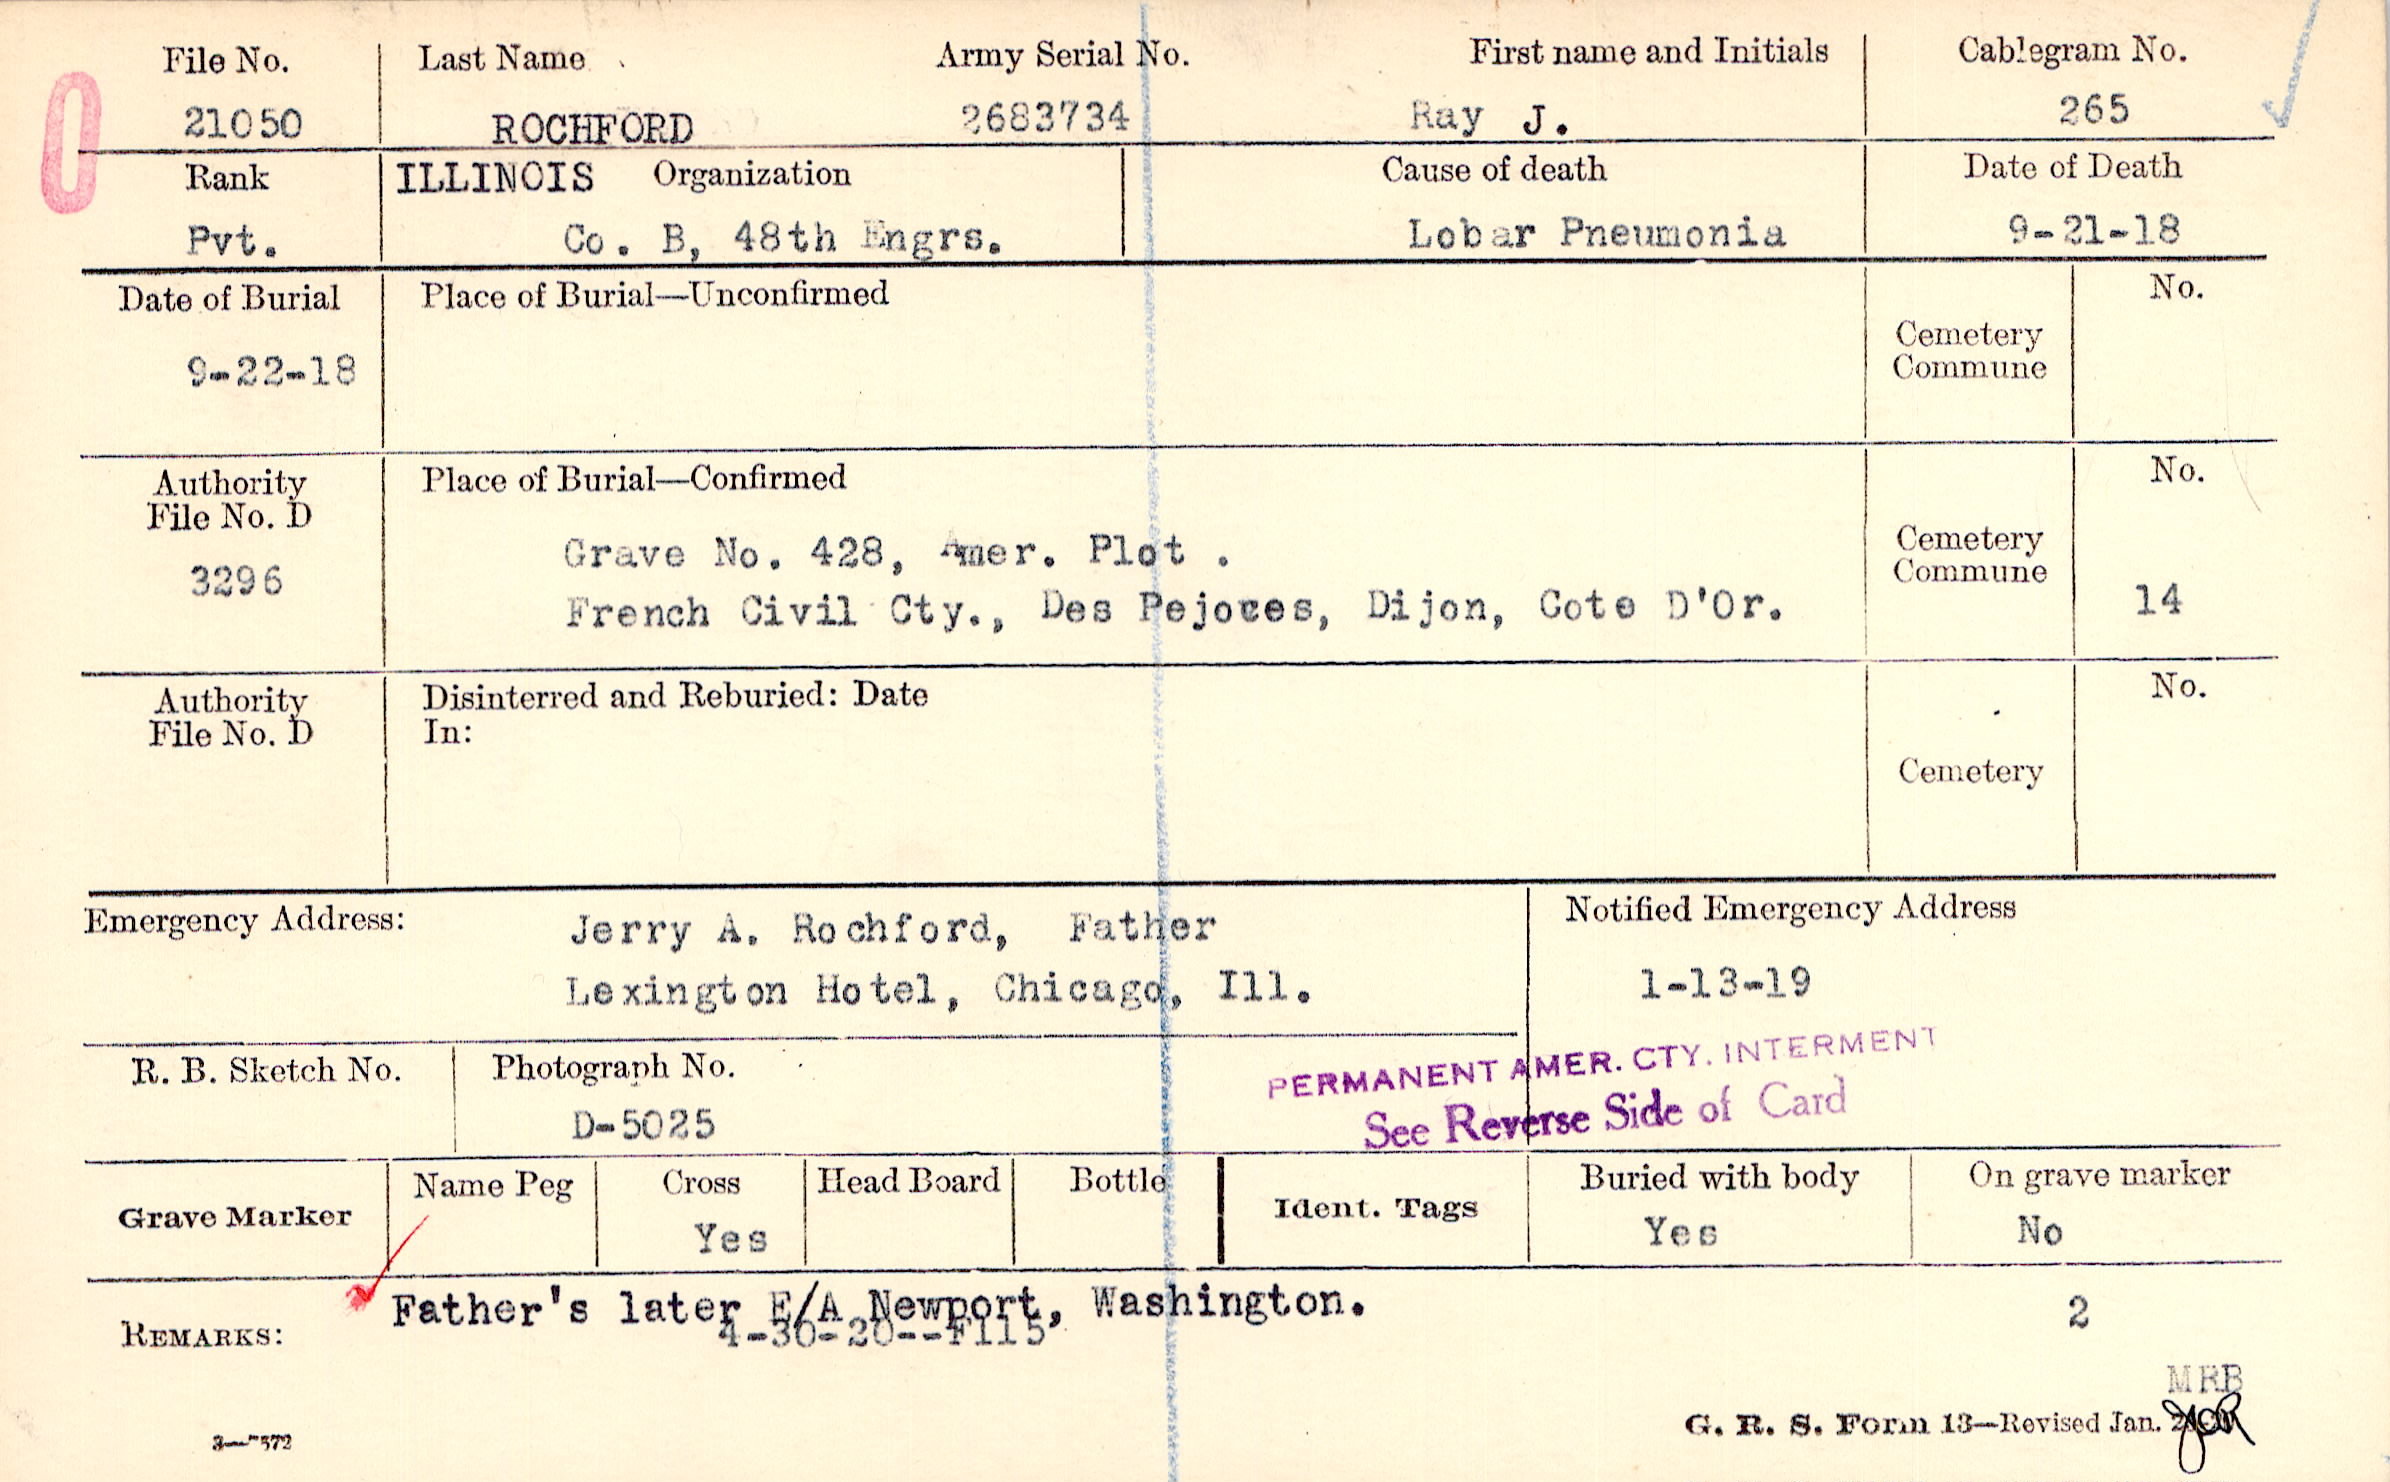 File No. Last Name Army Serial No. First name and Initials Cablegram No.
21050 ROCHFORD 2683734 Ray J. 265
Rank ILLINOIS Organization Cause of death Date of Death
Pvt. Co. B, 48th Engrs. Lobar Pneumonia 9-21-18
Date of Burial Place of Burial—Unconfirmed No.
Cemetery
Commune
9-22-18
Authority Place of Burial—Confirmed No.
File No. D
Grave No. 428, Amer. Plot . Cemetery
3296 Commune
French Civil Cty., Des Pejoces, Dijon, Cote D'Or. 14
Authority Disinterred and Reburied: Date No.
File No. D In:
Cemetery
Emergency Address: Jerry A. Rochford, Father Notified Emergency Address
Lexington Hotel, Chicago, Ill. 1-13-19
R. B. Sketch No. Photograph No. PERMANENT AMER. CTY. INTERMENT
D-5025 See Reverse Side of Card
Name Peg Cross Head Board Bottle Buried with body On grave marker
Grave Marker Yes Ident. Tags Yes No
Father's later E/A Newport, Washington. 2
REMARKS: 4-30-20--F115
MRB
G. R. S. Form 13—Revised Jan.